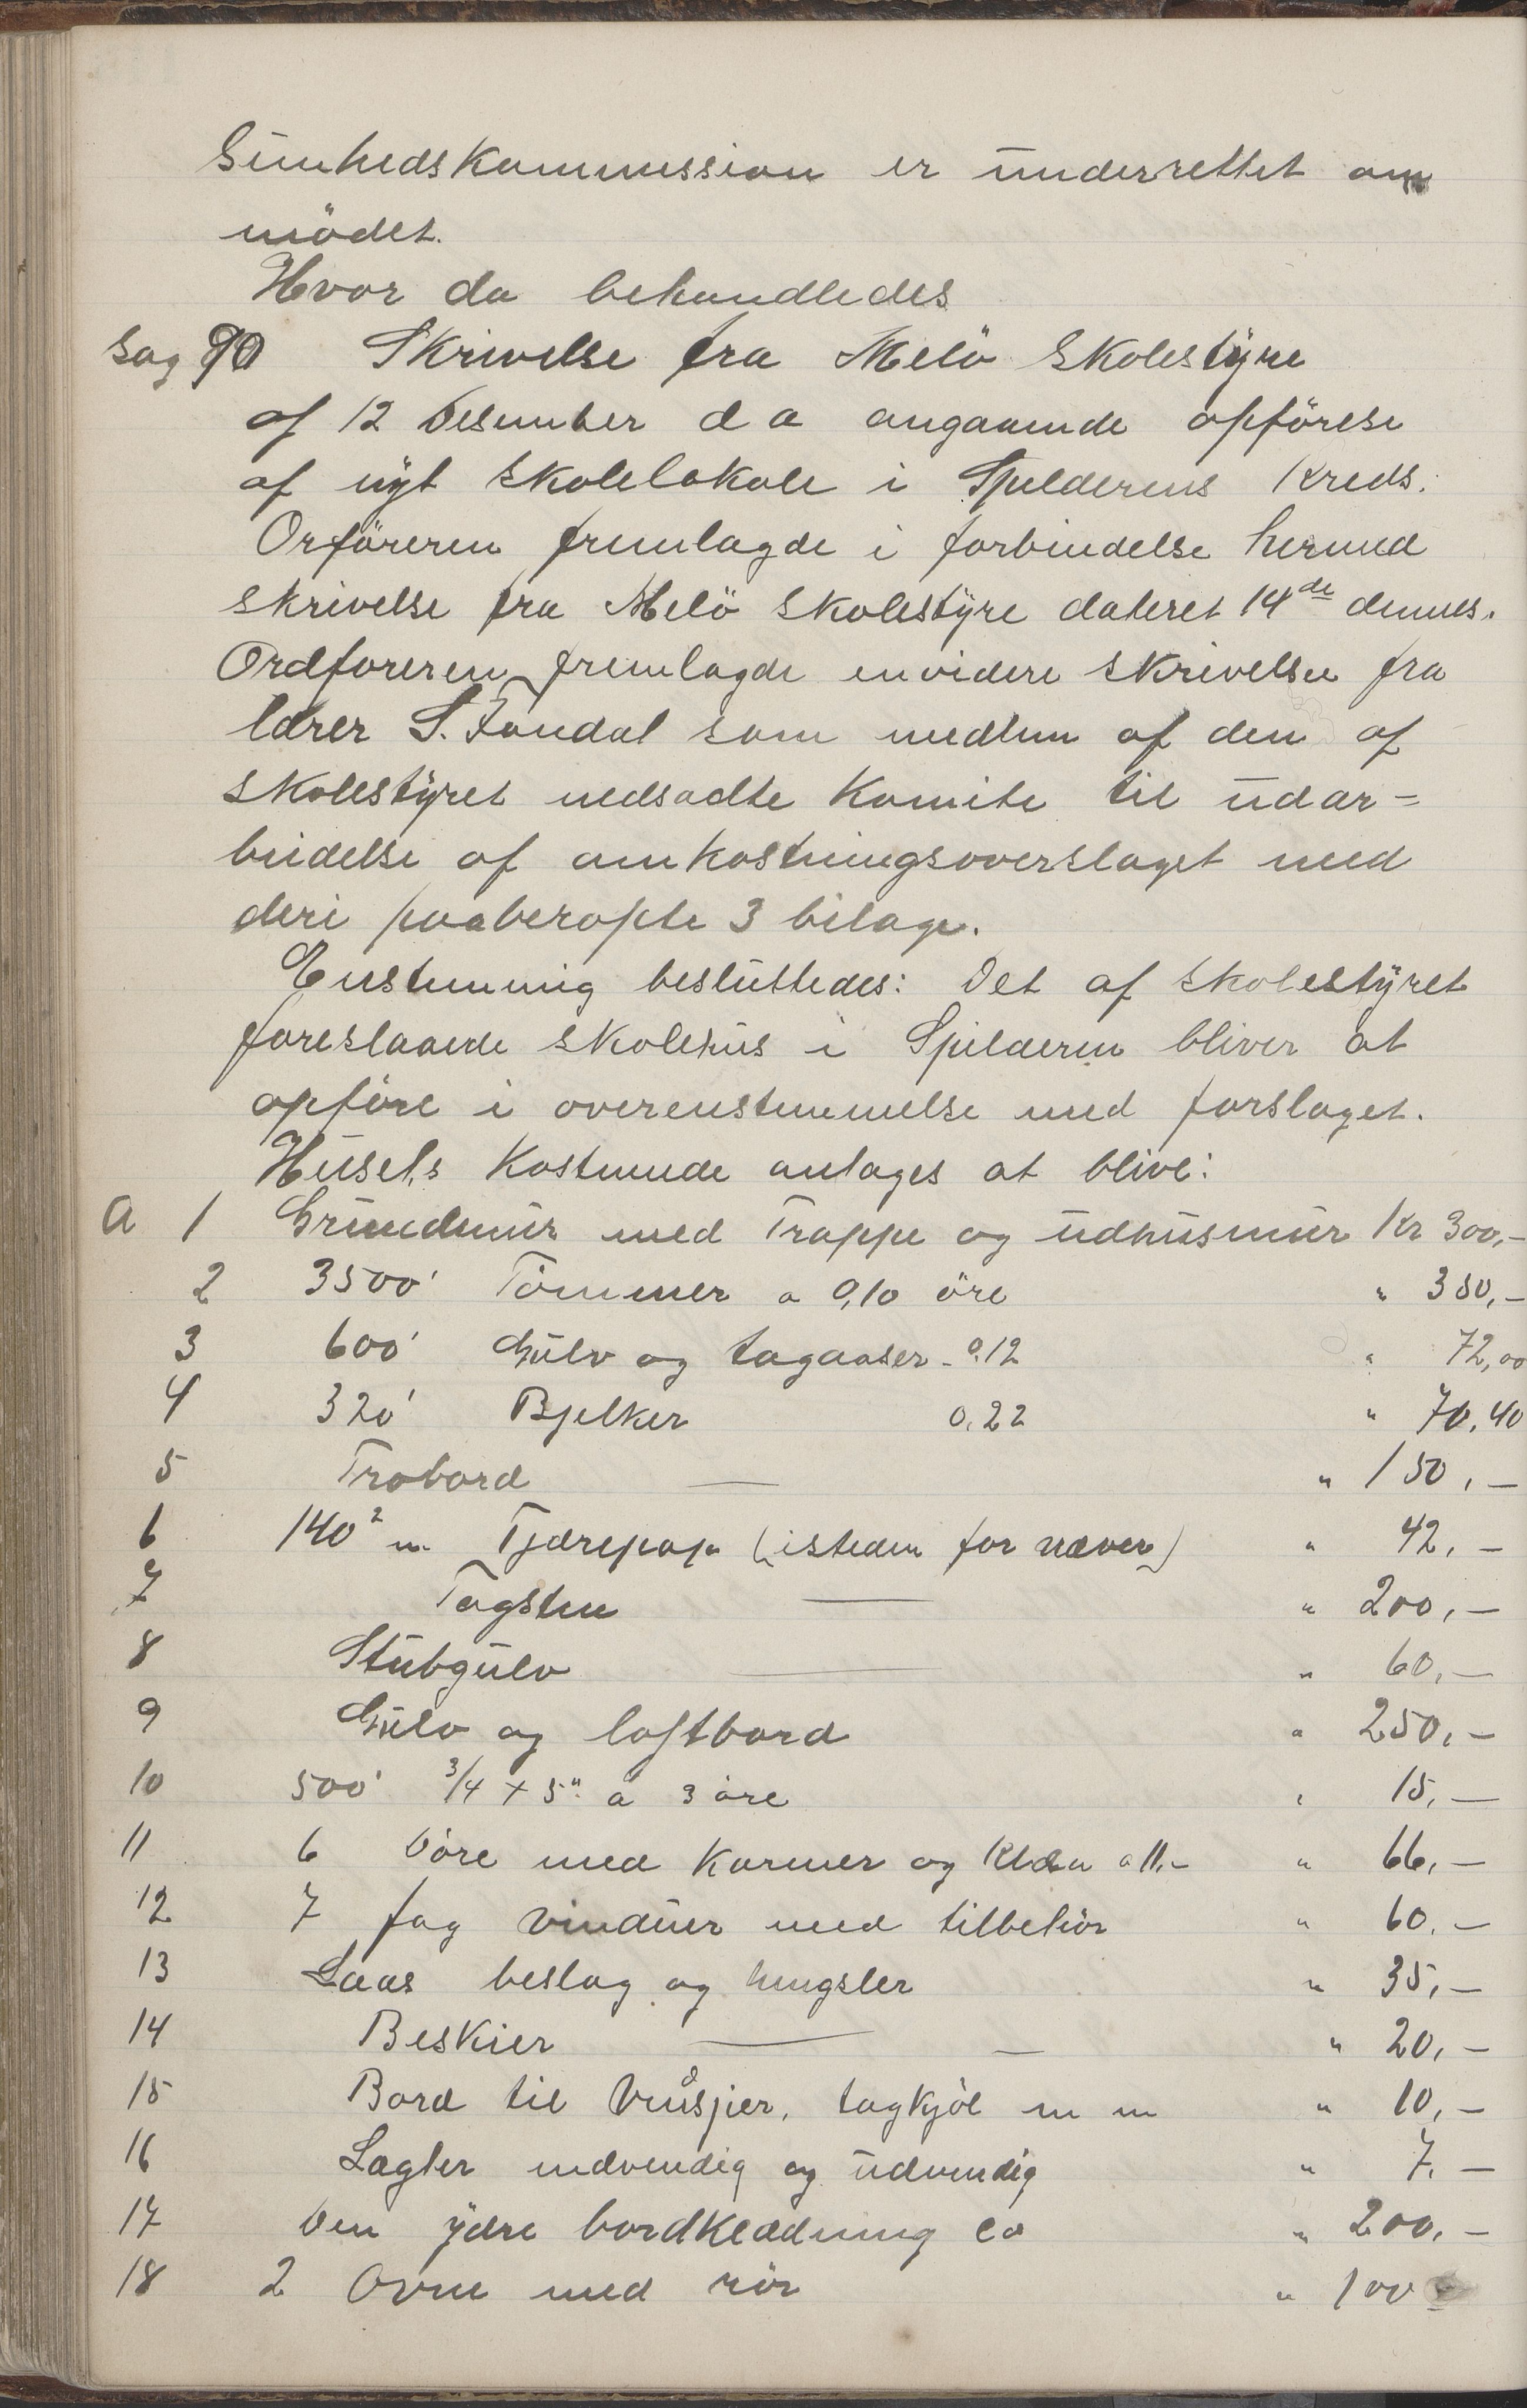 Sunhedskommission er underrettet om
mödet.
Hvor da behandledes
Sag 90 Skrivelse fra Melö Skolestyre
af 12 Desember d a angaaende opförese
af nyt Skolelokale i Spilderens Kreds.
Orföreren fremlagde i forbindelse hermed
skrivelse fra Melö Skolestyre dateret 14de dennes.
Ordforeren fremlagde envidere skrivelse fra
lærer S. Fondal som medlem af den af
skolestyret nedsadte Komite til udar=
beidelse af omkostningsoverslaget med
deri paaberopte 3 bilage.
Enstemmig besluttedes: Det af Skolestyret
foreslaaede skolehus i Spilderen bliver at
opföre i overenstemmelse med forslaget.
Husets Kostnende antages at blive:
A 1 Grundmur med Trappe og udhusmur Kr 300,-
2 3500' Tömmer a 0,10 öre " 350,-
3 600' Gulv og tagaaser - 0.12 " 72,00
4 320' Bjelker 0,22 " 70,40
5 Trobord — " 150,-
6 140² m. Tjærepap (isteden for næver) " 42,-
7 Tagsten — " 200,-
8 Stubgulv — " 60,-
9 Gulv og loftbord " 250,-
10 500' 3/4 + 5" a 3 öre " 15,-
11 6 Döre med Karmer og a 11,- " 66,-
12 7 fag vinduer med tilbehör " 60,-
13 Laas beslag og hengsler " 35,-
14 Beskier — — " 20,-
15 Bord til tagkjöl m m " 10,-
16 Lagter indvendig og udvendig " 7,-
17 Den ydre bordklædning ca " 200,-
18 2 Ovne med rör " 100-